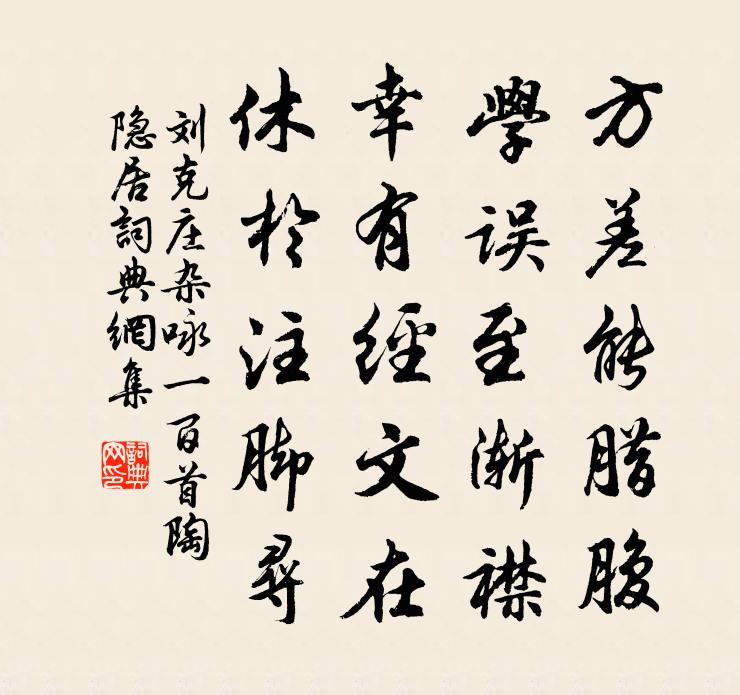 方差能腊腹
學误至渐襟
幸有經文在
休於注脚尋
刘克庄杂咏一百首陶
隐居詞典網集
詞典网印